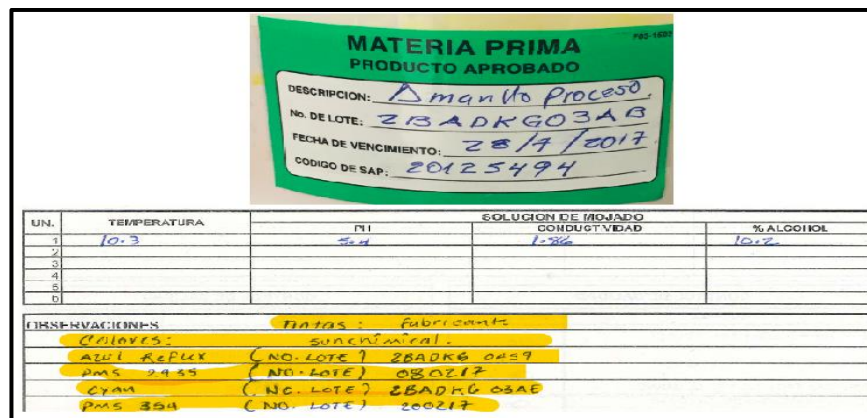 MATERIA PRIMA
PRODUCTO APROBADO
DESCRIPCION: Amarillo Proceso.
No. DE LOTE: 2BADKG03AB
FECHA DE VENCIMIENTO: 28/7/2017
CODIGO DE SAP: 20125494
UN. TEMPERATURA SOLUCION DE MOJADO
PH CONDUCTVIDAD % ALCOHOL
1 10.3 5.4 1.86 10.2
2
3
4
5
6
OBSERVACIONES Tintas: fabricante
Colores: sunchimical.
AZUl REFLEX (NO. LOTE) 2BADKG 0459
PMS 2935 (NO. LOTE) 080217
Cyan (NO. LOTE) 2BADKG 03AE
PMS 354 (NO. LOTE) 200217